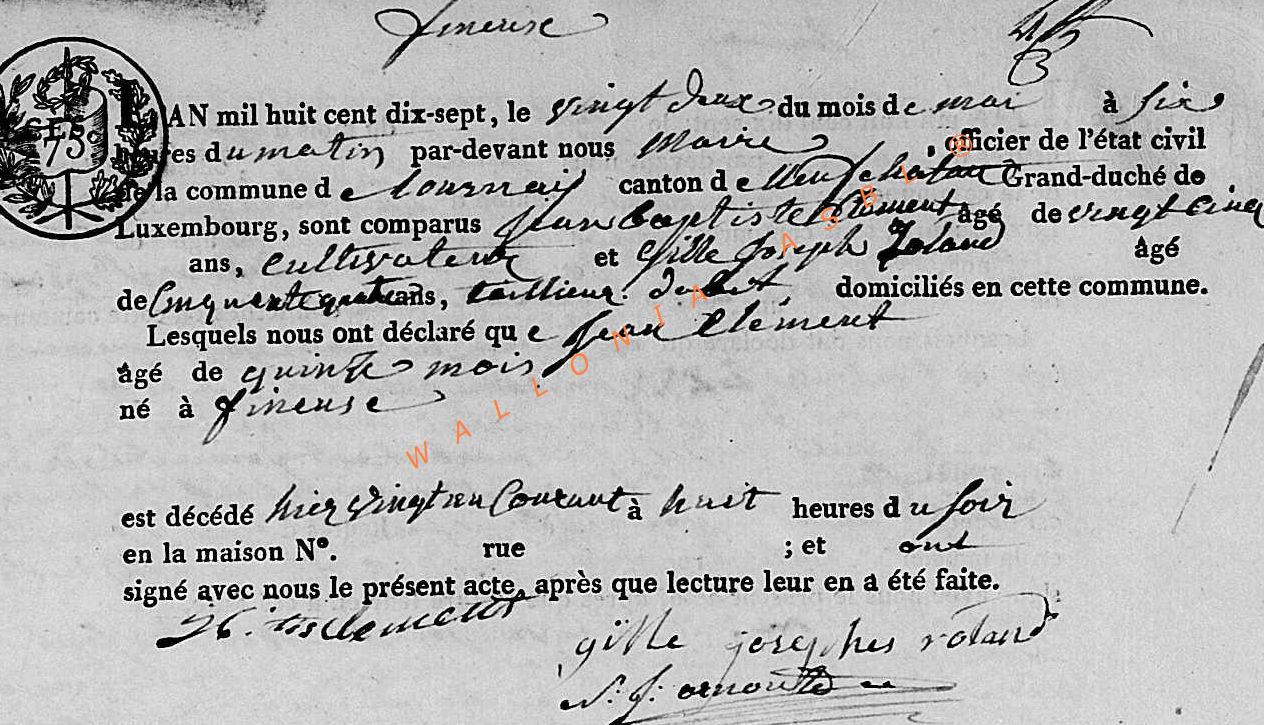 fineuse
L'AN mil huit cent dix-sept, le vingt deux du mois de mai à six
heures du matin par-devant nous Maire, officier de l'état civil
de la commune de tournay canton de Neufchateau Grand-duché de
Luxembourg, sont comparus Jean baptiste Clement âgé de vingt cinq
ans, cultivateur et Gille Joseph Roland âgé
de Cinquante quatre ans, tailleur domiciliés en cette commune.
Lesquels nous ont déclaré que Jean Clement
âgé de quinze mois
né à fineuse
est décédé hier vingt un Courant à huit heures du soir
en la maison N°. rue ; et ont
signé avec nous le présent acte, après que lecture leur en a été faite.
gille josephes roland
WALLONIA ASBL ©
75